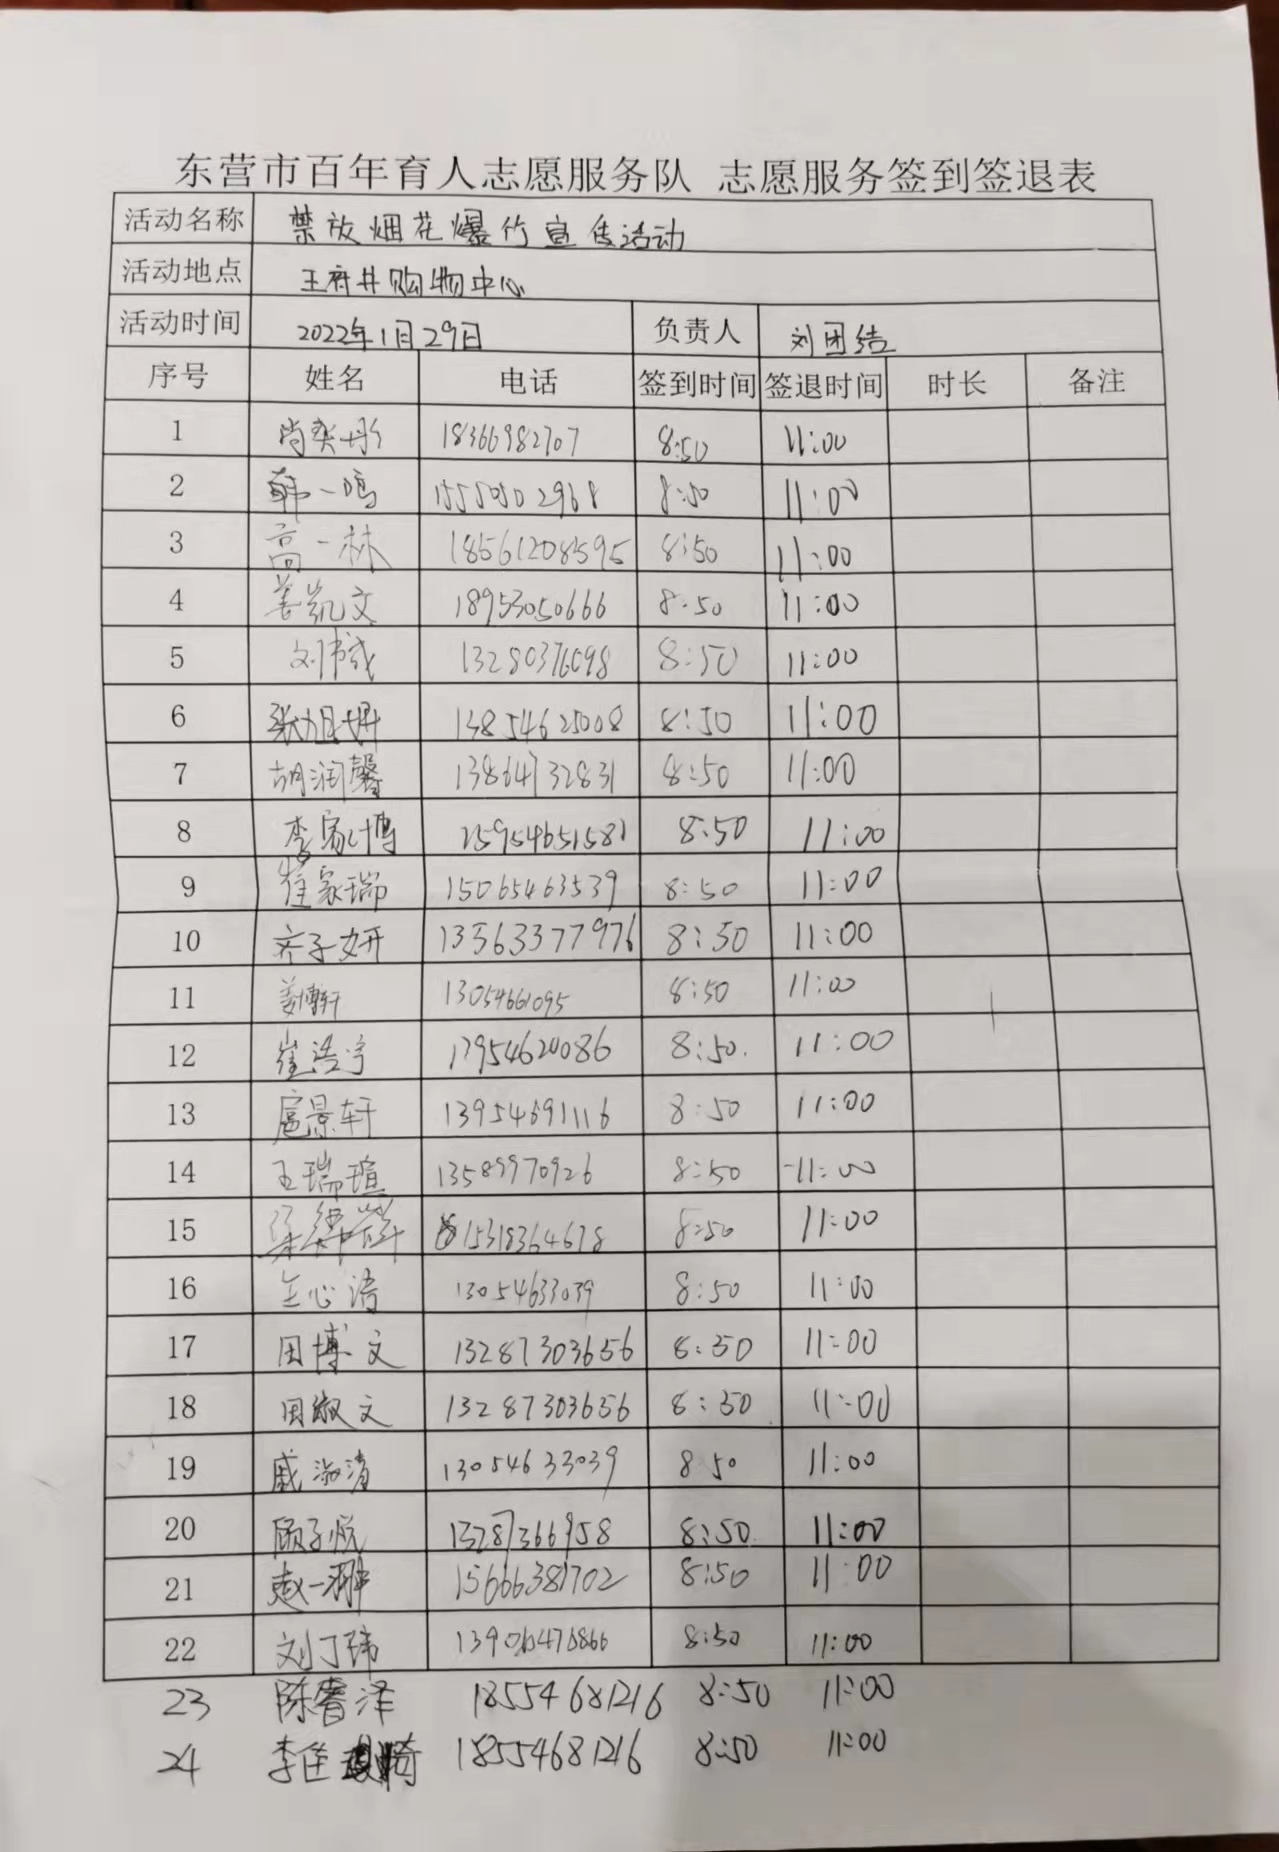 东营市百年育人志愿服务队 志愿服务签到签退表
活动名称 禁放烟花爆竹宣传活动
活动地点 王府井购物中心
活动时间 2022年1月29日 负责人 刘团结
序号 姓名 电话 签到时间 签退时间 时长 备注
1 尚奕彤 18366982707 8:50 11:00
2 韩一鸣 15550502968 8:50 11:00
3 高一林 18561208595 8:50 11:00
4 姜凯文 18953050666 8:50 11:00
5 13280376098 8:50 11:00
6 张旭姗 13854625008 8:50 11:00
7 胡润馨 13864732831 8:50 11:00
8 李家博 15954651581 8:50 11:00
9 崔家瑞 15065463539 8:50 11:00
10 齐子妍 13563377976 8:50 11:00
11 姜博轩 13054661095 8:50 11:00
12 崔浩宇 17954620086 8:50. 11:00
13 扈景轩 13954691116 8:50 11:00
14 王瑞瑄 13589970926 8:50 11:00
15 15318364678 8:50 11:00
16 13054633039 8:50 11:00
17 田博文 13287303656 8:50 11:00
18 田淑文 13287303656 8:50 11:00
19 戚淑清 13054633039 8:50 11:00
20 顾子悦 13287366958 8:50 11:00
21 赵一翀 15666381702 8:50 11:00
22 刘丁玮 13906476866 8:50 11:00
23 陈睿泽 18554681216 8:50 11:00
24 李 18554681216 8:50 11:00